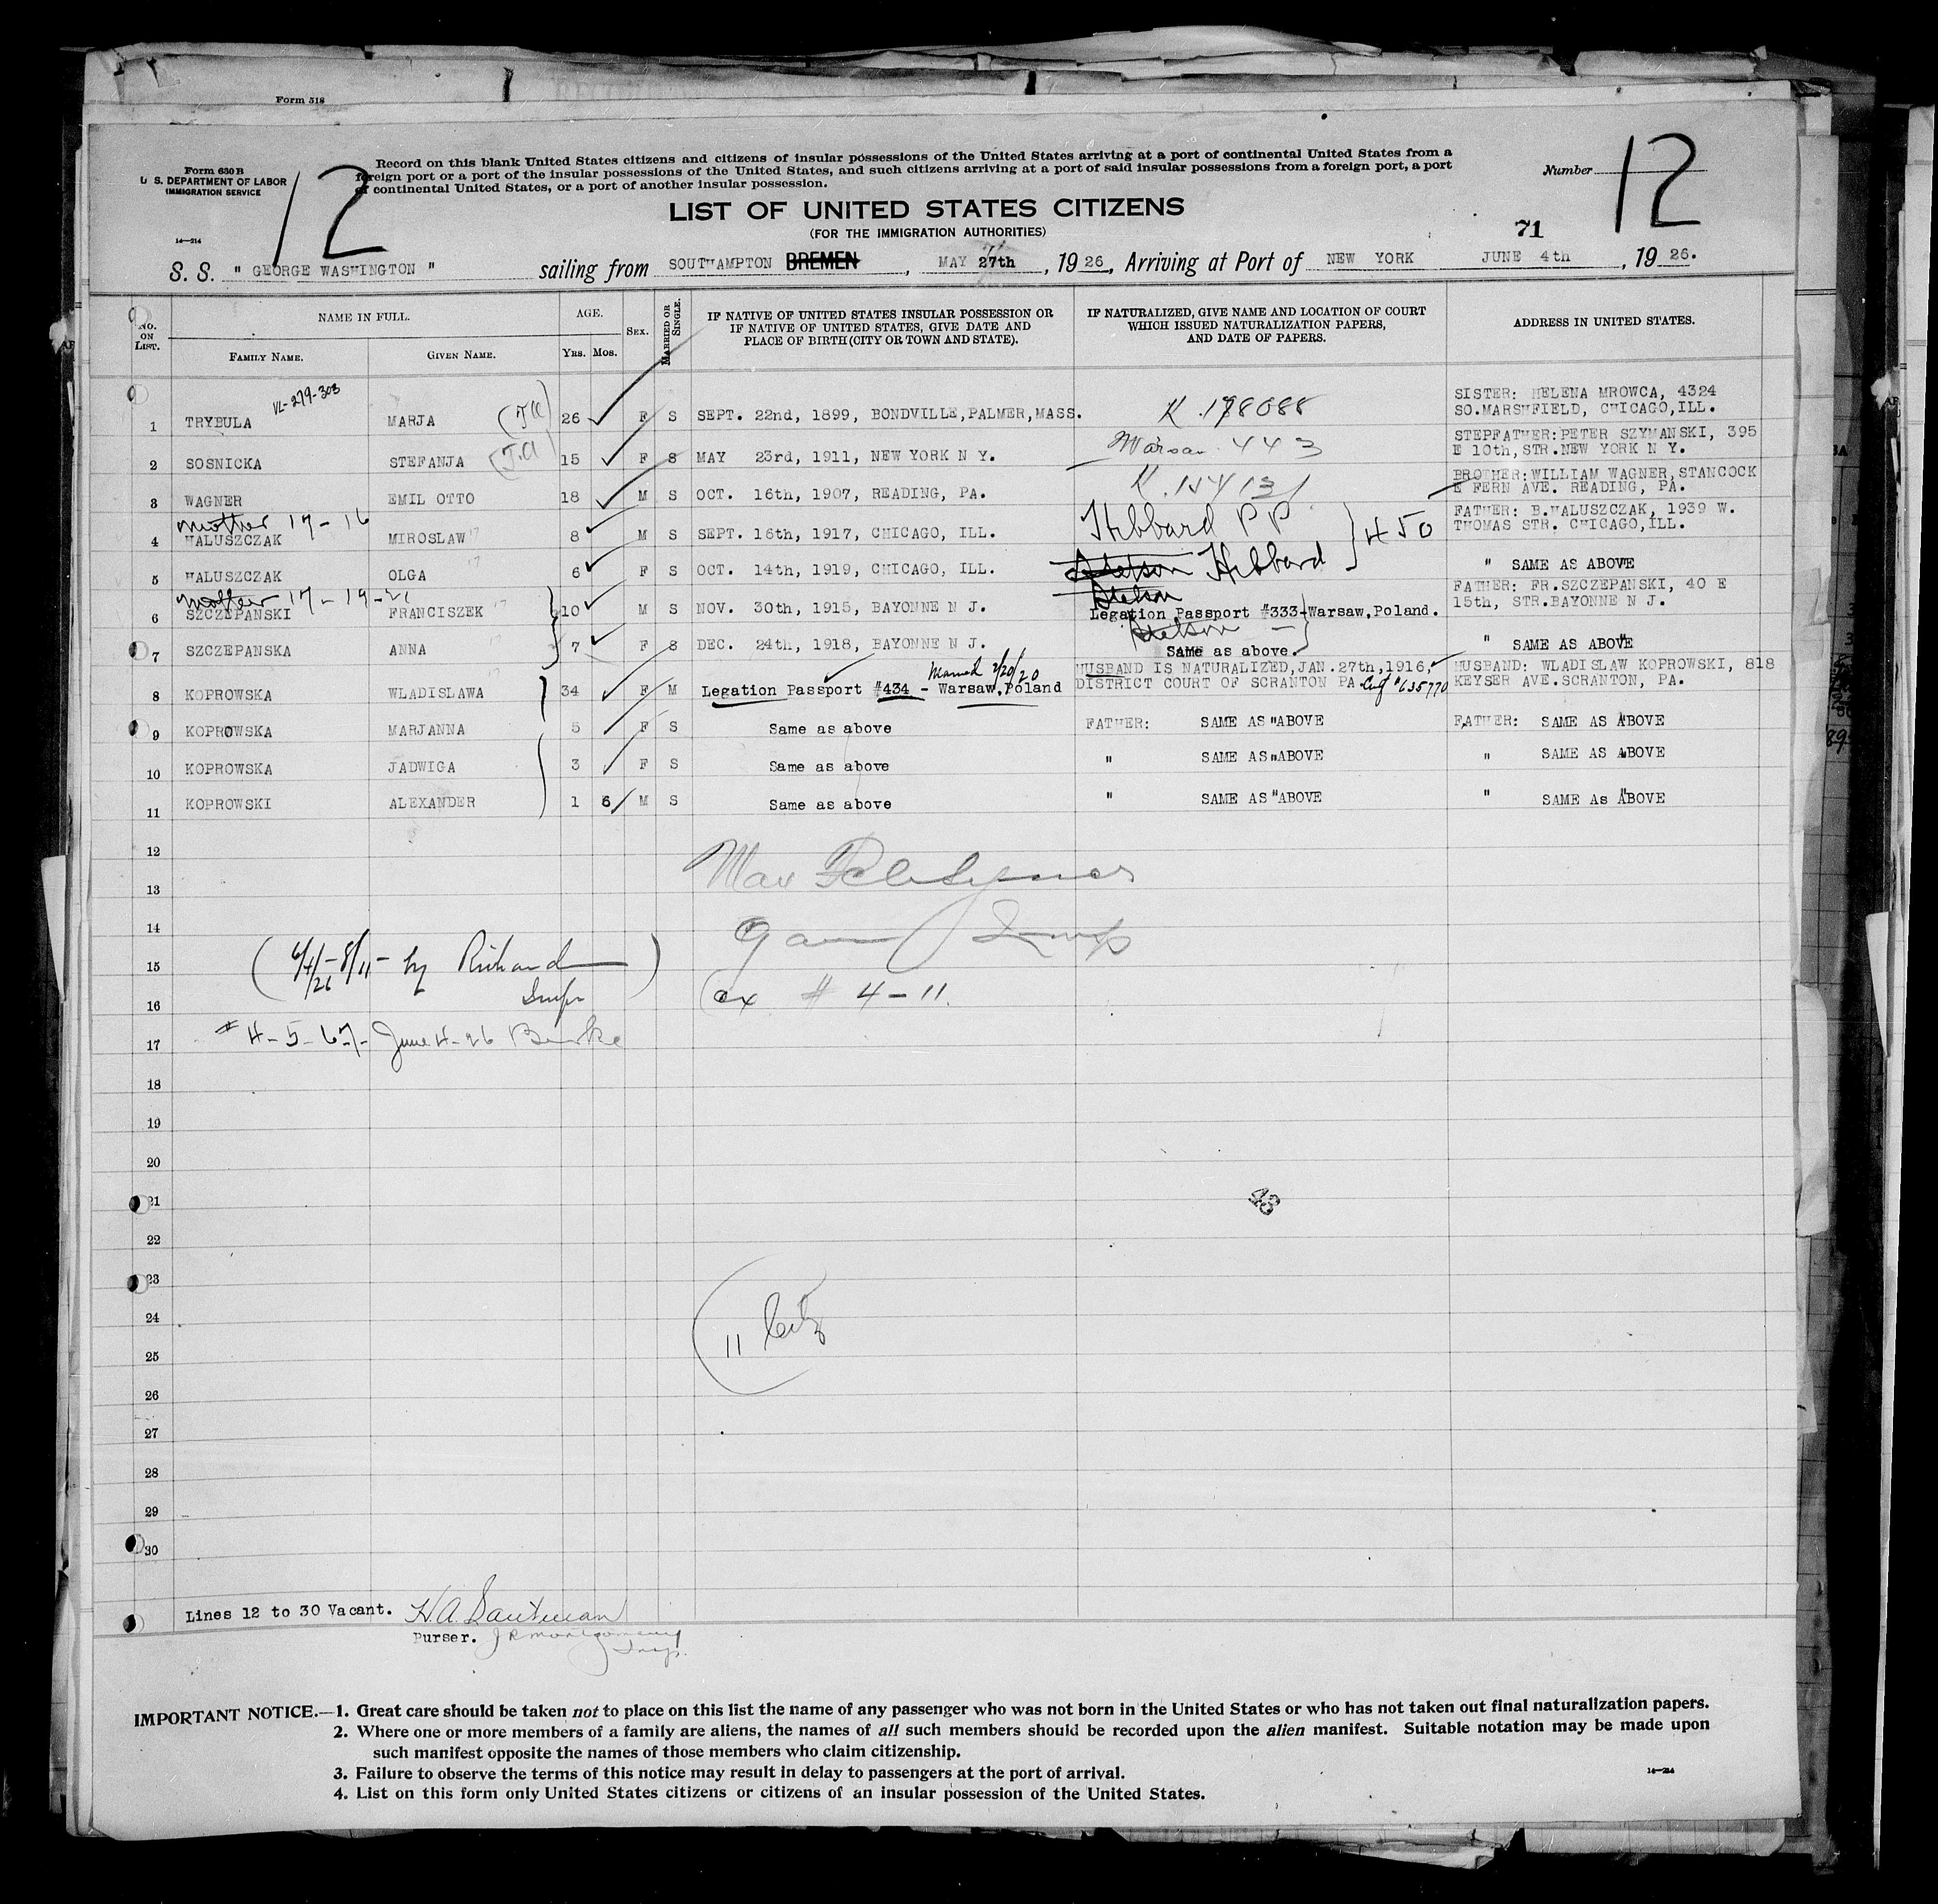 Form 518
Form 630 B
U. S. DEPARTMENT OF LABOR
IMMIGRATION SERVICE
12
Record on this blank United States citizens and citizens of insular possessions of the United States arriving at a port of continental United States from a
foreign port or a port of the insular possessions of the United States, and such citizens arriving at a port of said insular possessions from a foreign port, a port
of continental United States, or a port of another insular possession.
Number 12
LIST OF UNITED STATES CITIZENS
(FOR THE IMMIGRATION AUTHORITIES)
14—214
71
S. S. " GEORGE WASHINGTON " sailing from SOUTHAMPTON BREMEN, MAY 27th, 1926, Arriving at Port of NEW YORK JUNE 4th, 1926.
No. ON LIST.
NAME IN FULL.
FAMILY NAME.
GIVEN NAME.
AGE.
Yrs. Mos.
SEX.
MARRIED OR SINGLE.
IF NATIVE OF UNITED STATES INSULAR POSSESSION OR
IF NATIVE OF UNITED STATES, GIVE DATE AND
PLACE OF BIRTH (CITY OR TOWN AND STATE).
IF NATURALIZED, GIVE NAME AND LOCATION OF COURT
WHICH ISSUED NATURALIZATION PAPERS,
AND DATE OF PAPERS.
ADDRESS IN UNITED STATES.
VL-279-303
1 TRYBULA MARJA 26 F S SEPT. 22nd, 1899, BONDVILLE,PALMER,MASS. K.178088 SISTER: HELENA MROWCA, 4324
SO.MARSHFIELD, CHICAGO,ILL.
2 SOSNICKA STEFANJA 15 F S MAY 23rd, 1911, NEW YORK N Y. Warsaw 443 STEPFATHER:PETER SZYMANSKI, 395
E 10th,STR.NEW YORK N Y.
3 WAGNER EMIL OTTO 18 M S OCT. 16th, 1907, READING, PA. BROTHER:WILLIAM WAGNER,STANCOCK
E FERN AVE. READING, PA.
mother 17-16
4 HALUSZCZAK MIROSLAW 8 M S SEPT. 16th, 1917, CHICAGO, ILL. Hibbard P P 450 FATHER: B.HALUSZCZAK, 1939 W.
THOMAS STR. CHICAGO,ILL.
5 HALUSZCZAK OLGA 6 F S OCT. 14th, 1919, CHICAGO, ILL. Stetson Hibbard " SAME AS ABOVE
mother 17-19-21
Stetson
6 SZCZEPANSKI FRANCISZEK 10 M S NOV. 30th, 1915, BAYONNE N J. Legation Passport #333-Warsaw,Poland. FATHER: FR.SZCZEPANSKI, 40 E
15th, STR.BAYONNE N J.
Stetson
7 SZCZEPANSKA ANNA 7 F S DEC. 24th, 1918, BAYONNE N J. Same as above. " SAME AS ABOVE
Married 2/20/20
8 KOPROWSKA WLADISLAWA 34 F M Legation Passport #434 - Warsaw,Poland HUSBAND IS NATURALIZED,JAN.27th,1916, HUSBAND: WLADISLAW KOPROWSKI, 818
DISTRICT COURT OF SCRANTON PA. Ctf #635770 KEYSER AVE.SCRANTON, PA.
9 KOPROWSKA MARJANNA 5 F S Same as above FATHER: SAME AS ABOVE FATHER: SAME AS ABOVE
10 KOPROWSKA JADWIGA 3 F S Same as above " SAME AS ABOVE " SAME AS ABOVE
11 KOPROWSKI ALEXANDER 1 6 M S Same as above " SAME AS ABOVE " SAME As ABOVE
12
13 Max
14
15 (6/4/26-8/11- by Richard
16 Inspr ) ex # 4-11.
17 # 4-5-6-7- June 4-26 Burke
18
19
20
21
48
22
23
24 11 Citz
25
26
27
28
29
30
Lines 12 to 30 Vacant. H.A.
Purser. J R Montgomery
Insp.
IMPORTANT NOTICE.—1. Great care should be taken not to place on this list the name of any passenger who was not born in the United States or who has not taken out final naturalization papers.
2. Where one or more members of a family are aliens, the names of all such members should be recorded upon the alien manifest. Suitable notation may be made upon
such manifest opposite the names of those members who claim citizenship.
3. Failure to observe the terms of this notice may result in delay to passengers at the port of arrival.
14—214
4. List on this form only United States citizens or citizens of an insular possession of the United States.